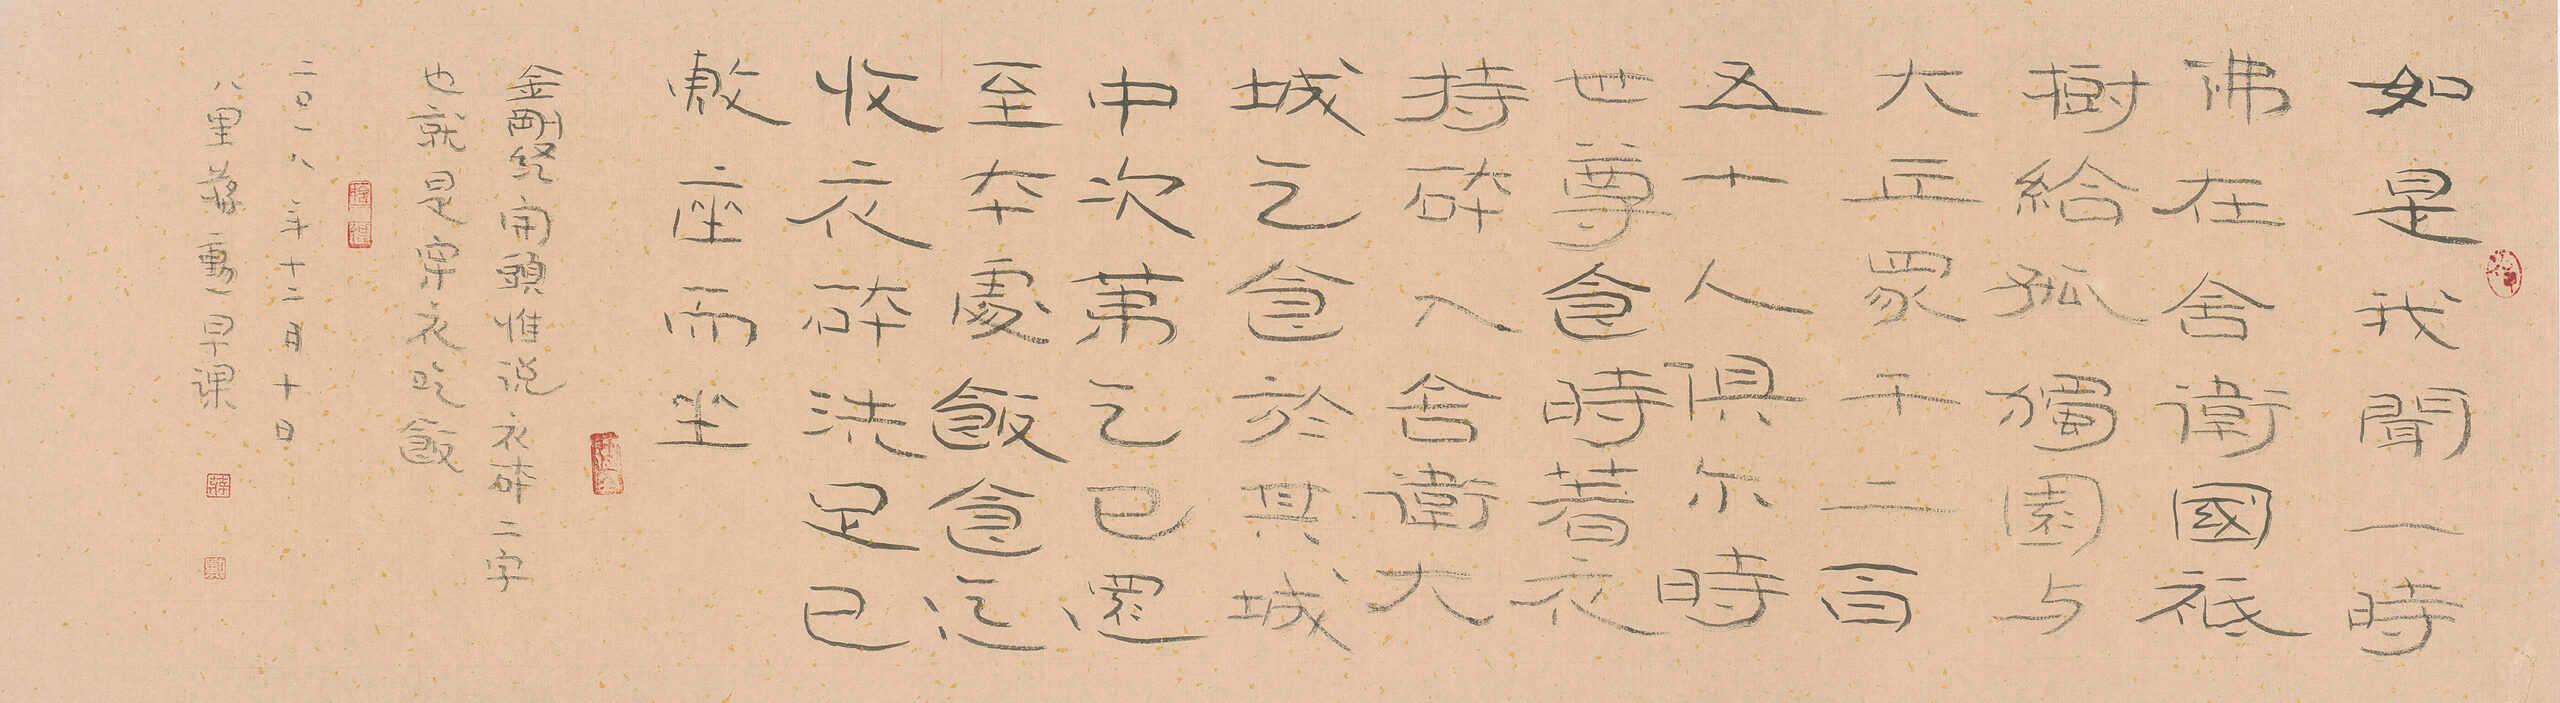 如是我聞一時
佛在舍衛國祇
樹給孤獨園与
大丘眾千二百
五十人俱尔時
世尊食時著衣
持砵入舍衛大
城乞食於其城
中次苐乞已還
至夲處飯食訖
收衣砵洗足已
敷座而坐
金剛經開頭惟說衣砵二字
也就是穿衣吃飯
二〇一八年十二月十日
八里蔣勳早課